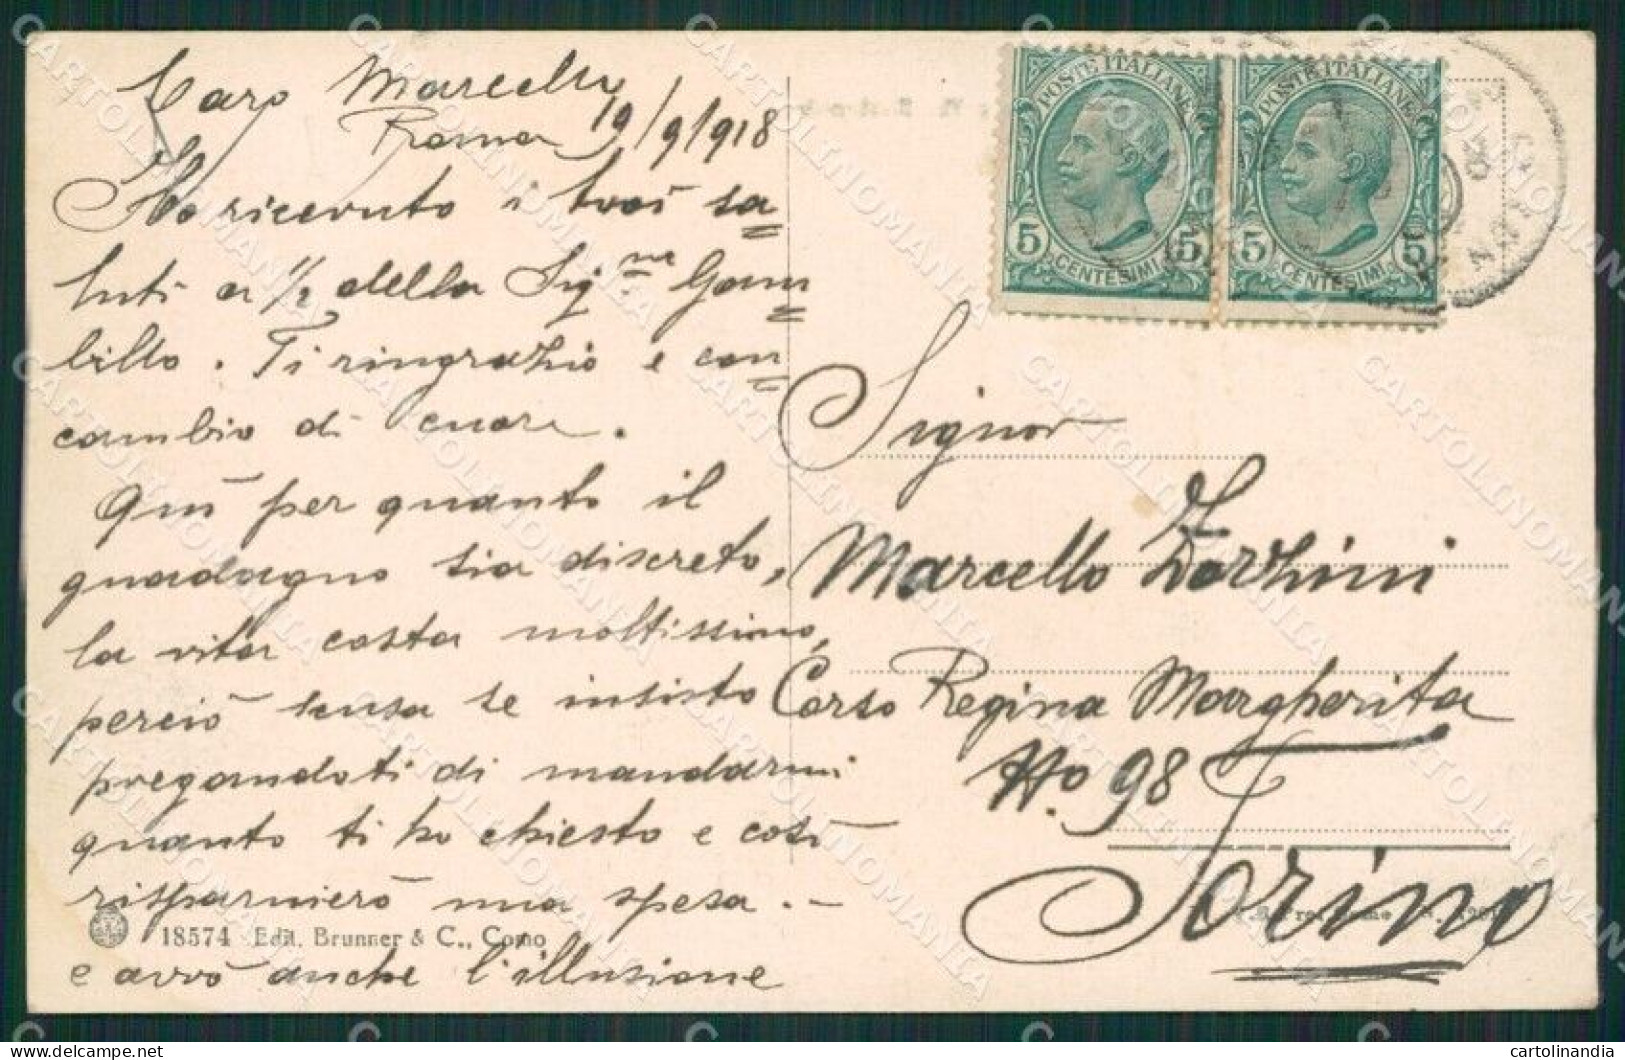 Caro Marcello
Roma 19/9/918
Ho ricevuto i tuoi sa
luti a ½ della Sig.na Gam
billo. Ti ringrazio e con
cambio di cuore.
Quì per quanto il
guadagno sia discreto,
la vita costa moltissimo,
perciò scusa se insisto
pregandoti di mandarmi
quanto ti ho chiesto e così
risparmierò una spesa. –
e avrò anche l'illusione
18574 Edit. Brunner & C., Como
POSTE ITALIANE
5 CENTESIMI 5
POSTE ITALIANE
5 CENTESIMI 5
Signor
Marcello Zorzini
Corso Regina Margherita
No. 98
Torino
CARTOLINOMANIA
cartolinandia